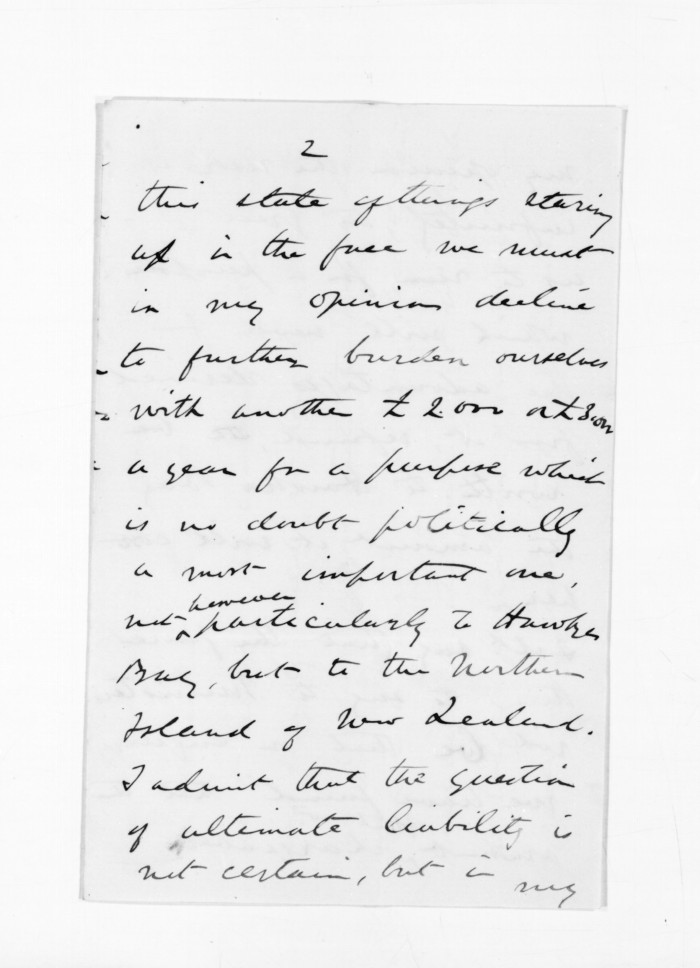 2
this state of things staring
us in the face we must
in my opinion decline
to further burden ourselves
with another £2.000 or £3.000
a year for a purpose which
is no doubt politically
a most important one,
however
not particularly to Hawkes
Bay, but to the Northern
Island of New Zealand.
I admit that the question
of ultimate liability is
not certain, but in my